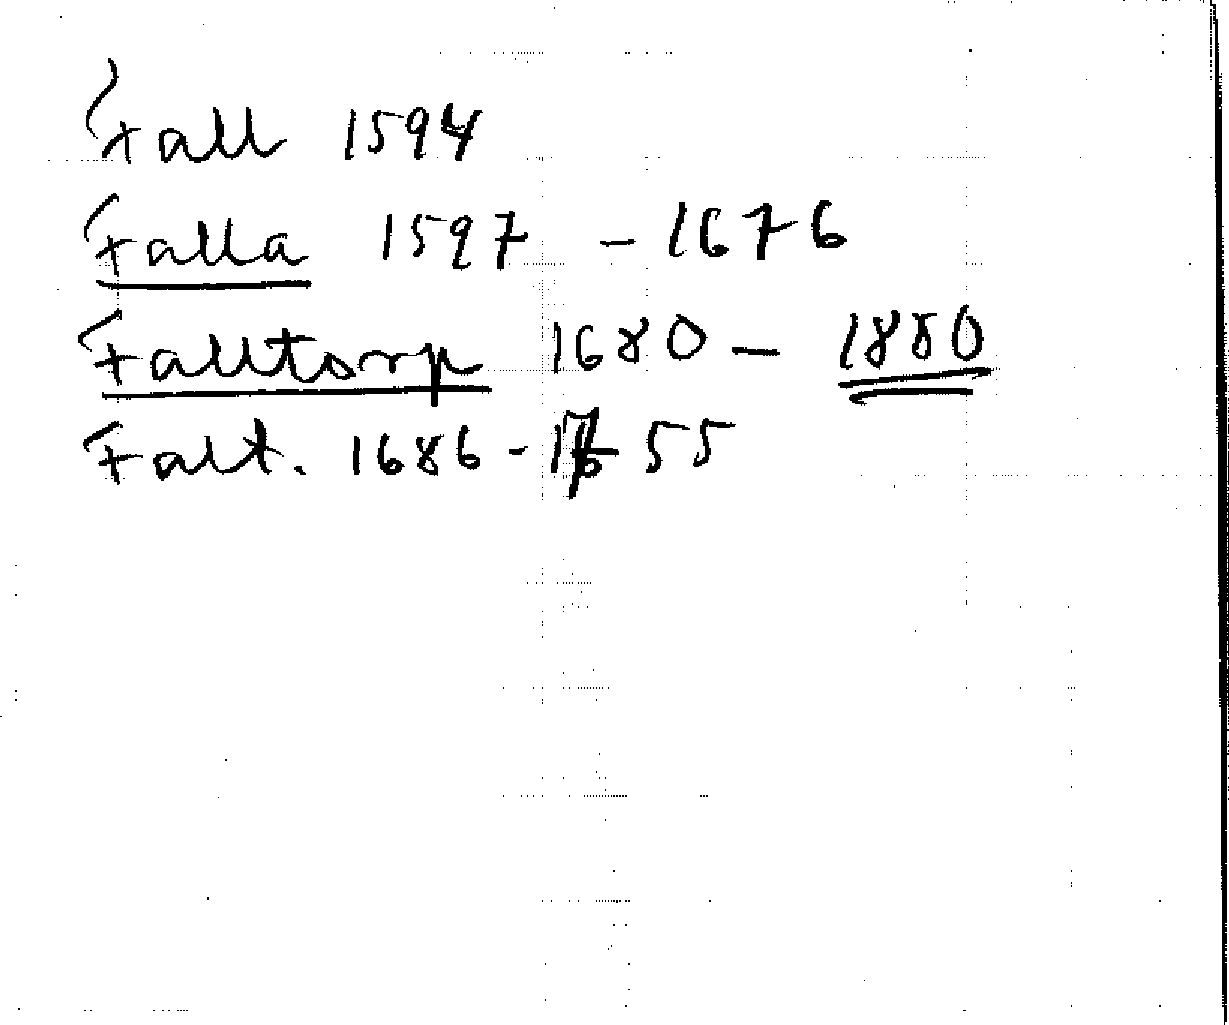 Fall 1594
Falla 1597 - 1676
Falltorp 1680 - 1880
Falt. 1686 - 1755